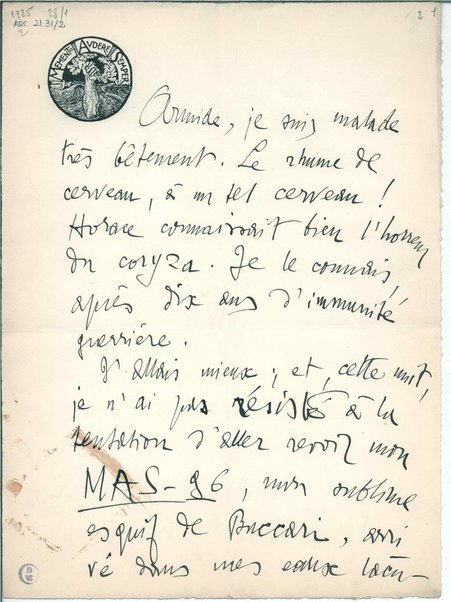 1925 28/1
ARC. 21.31/2.
2
2 1
MEMENTO AVDERE SEMPER
Armide, je suis malade
très bêtement. Le rhume de
cerveau, à un tel cerveau !
Horace connaissait bien l'horreur
du coryza. Je le connais,
après dix ans d'immunité
guerrière.
J'allais mieux ; et, cette nuit,
je n'ai pas résisté à la
tentation d'aller revoir mon
MAS-96, mon sublime
esquif de Buccari, arri
vé dans mes eaux lacu-